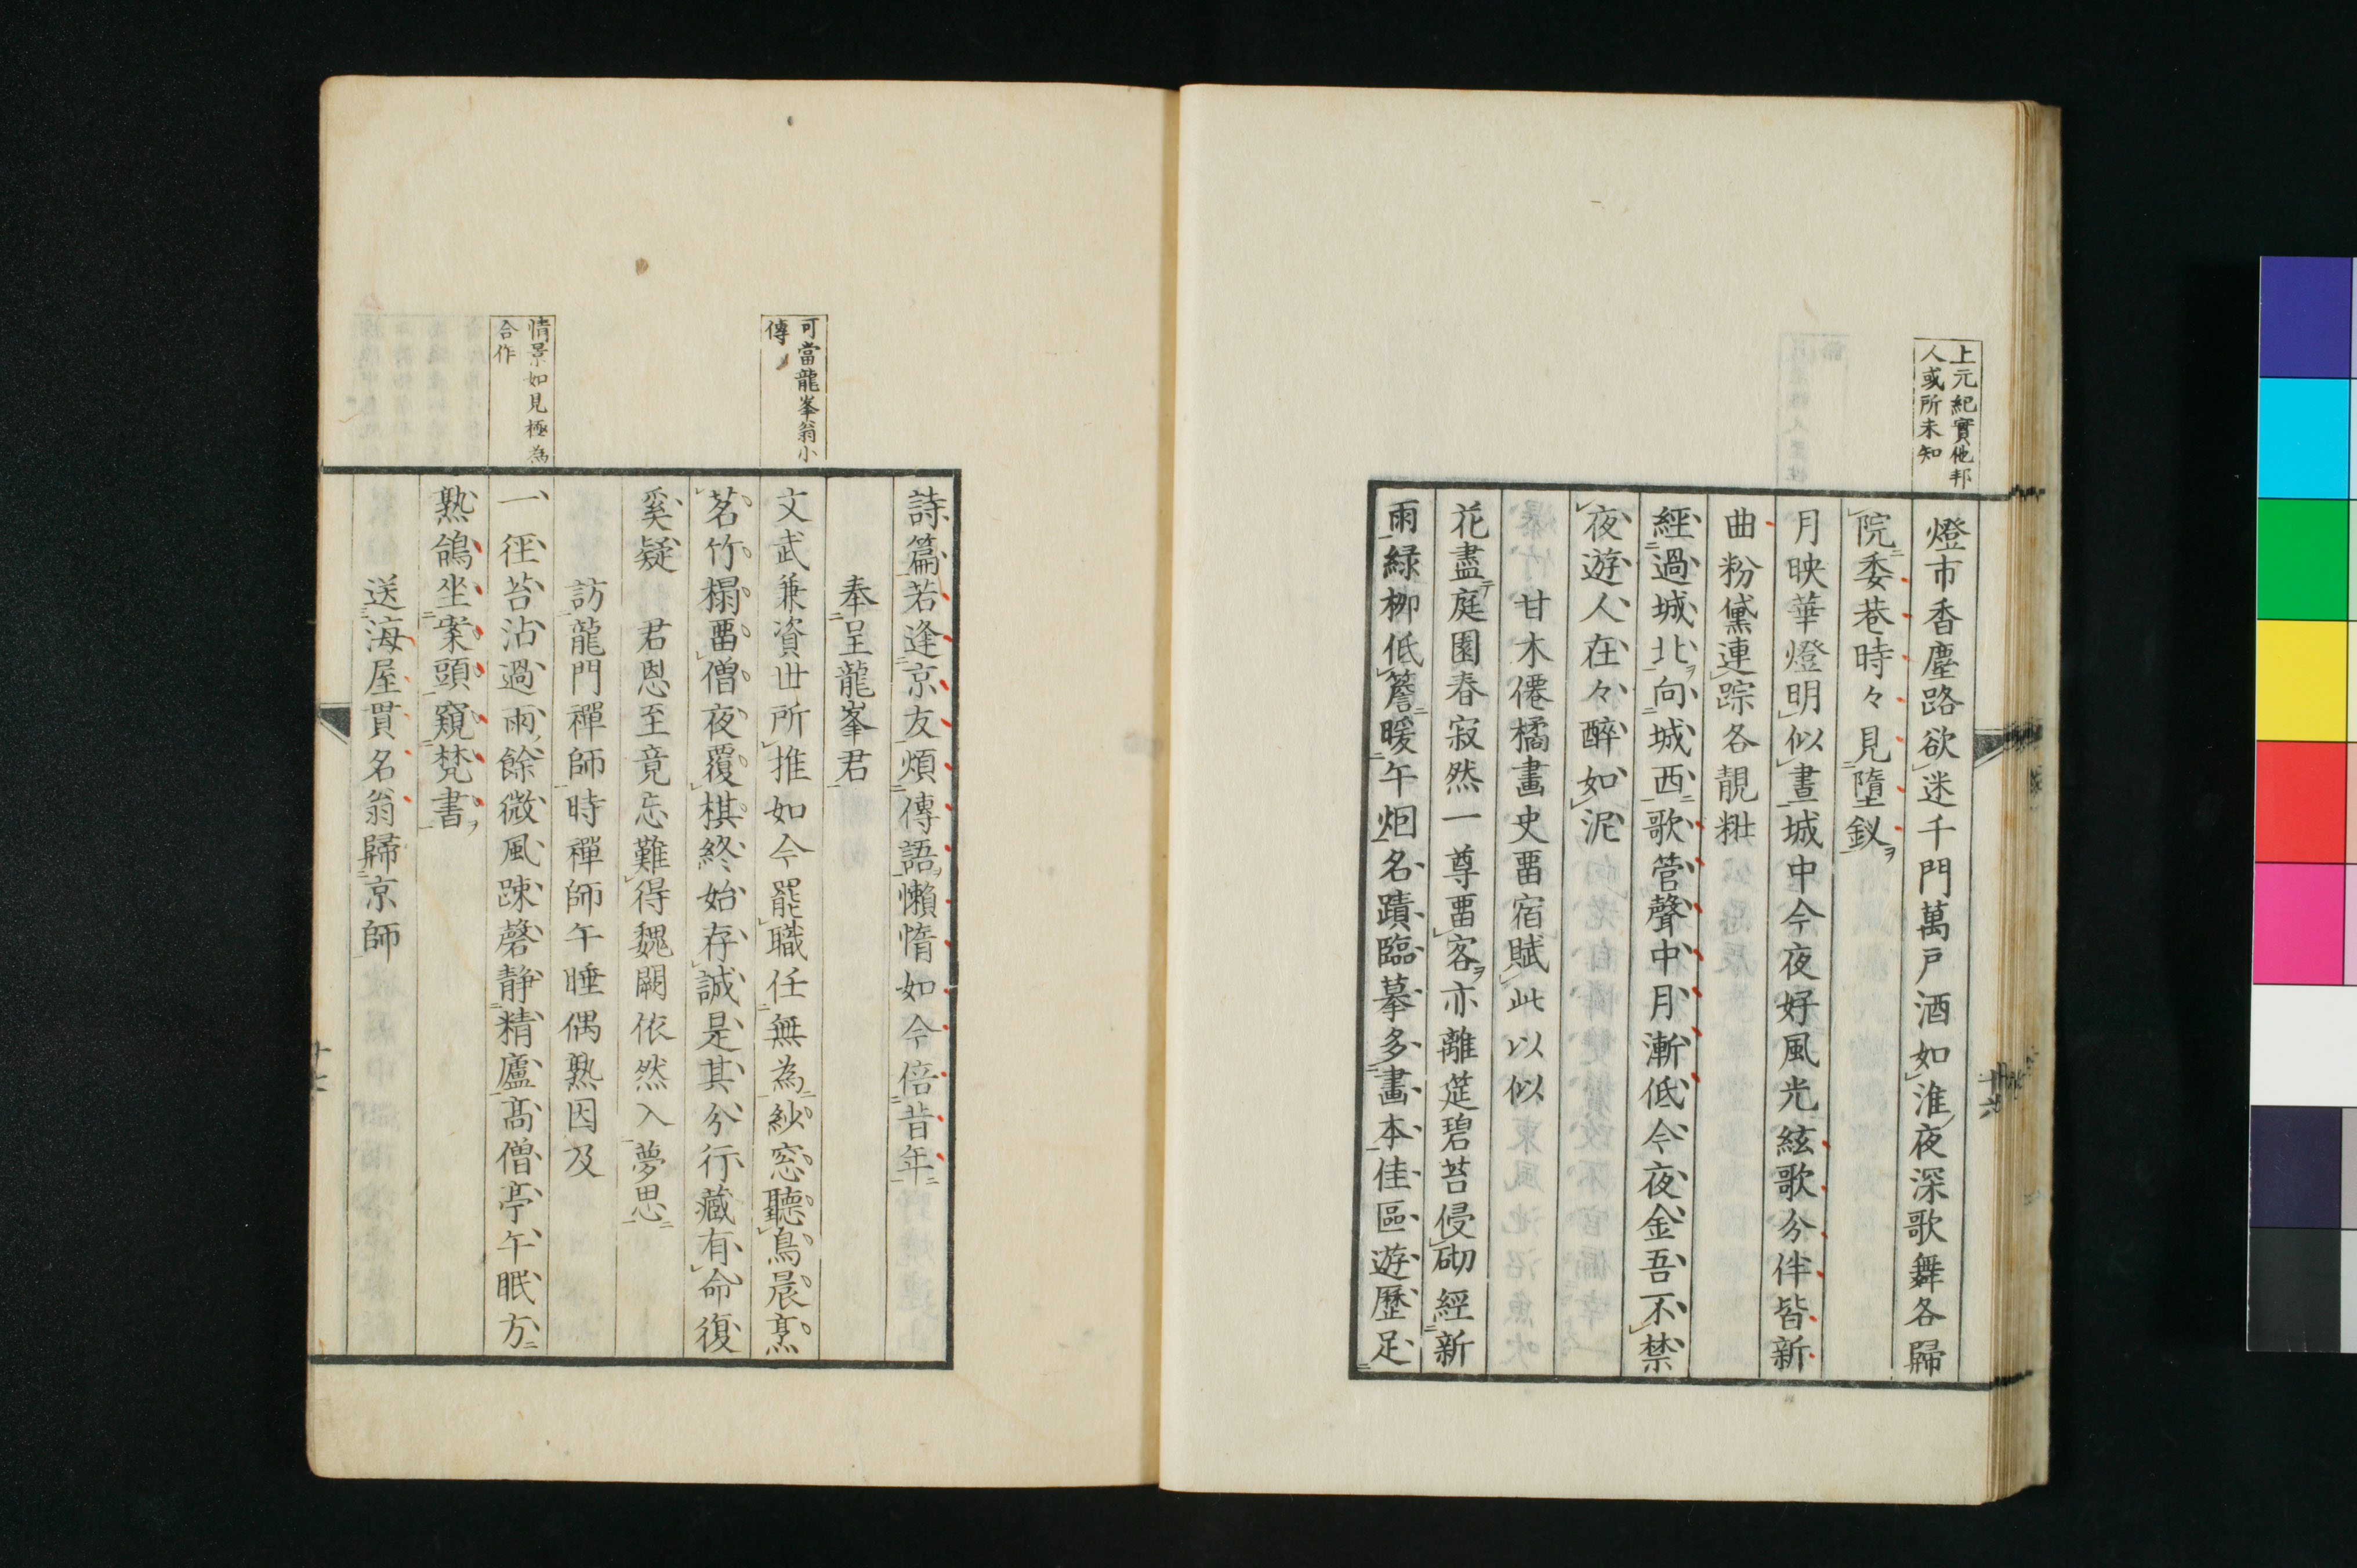 上元紀實他邦
人或所未知
燈市香塵路欲迷千門萬戸酒如淮夜深歌舞各歸
院委巷時々見墮釵
月映華燈明似晝城中今夜好風光絃歌分伴皆新
曲粉黛連踪各靚粧
經過城北向城西歌管聲中月漸低今夜金吾不禁
夜遊人在々醉如泥
甘木僊橘畫史畱宿賦此以似
花盡庭園春寂然一尊畱客亦離筵碧苔侵砌經新
雨緑栁低簷暖午烟名蹟臨摹多畫本佳區遊歷足
十六
詩篇若逢京友煩傳語懶惰如今倍昔年
奉呈龍峯君
可當龍峯翁小
傳
文武兼資世所推如今罷職任無為紗窓聽鳥晨烹
茗竹榻畱僧夜覆棋終始存誠是其分行藏有命復
奚疑　君恩至竟忘難得魏闕依然入夢思
訪龍門禪師時禪師午睡偶熟因及
情景如見極為
合作
一徑苔沾過雨餘微風踈磬静精廬高僧亭午眠方
熟鴿坐案頭窺梵書
送海屋貫名翁歸京師